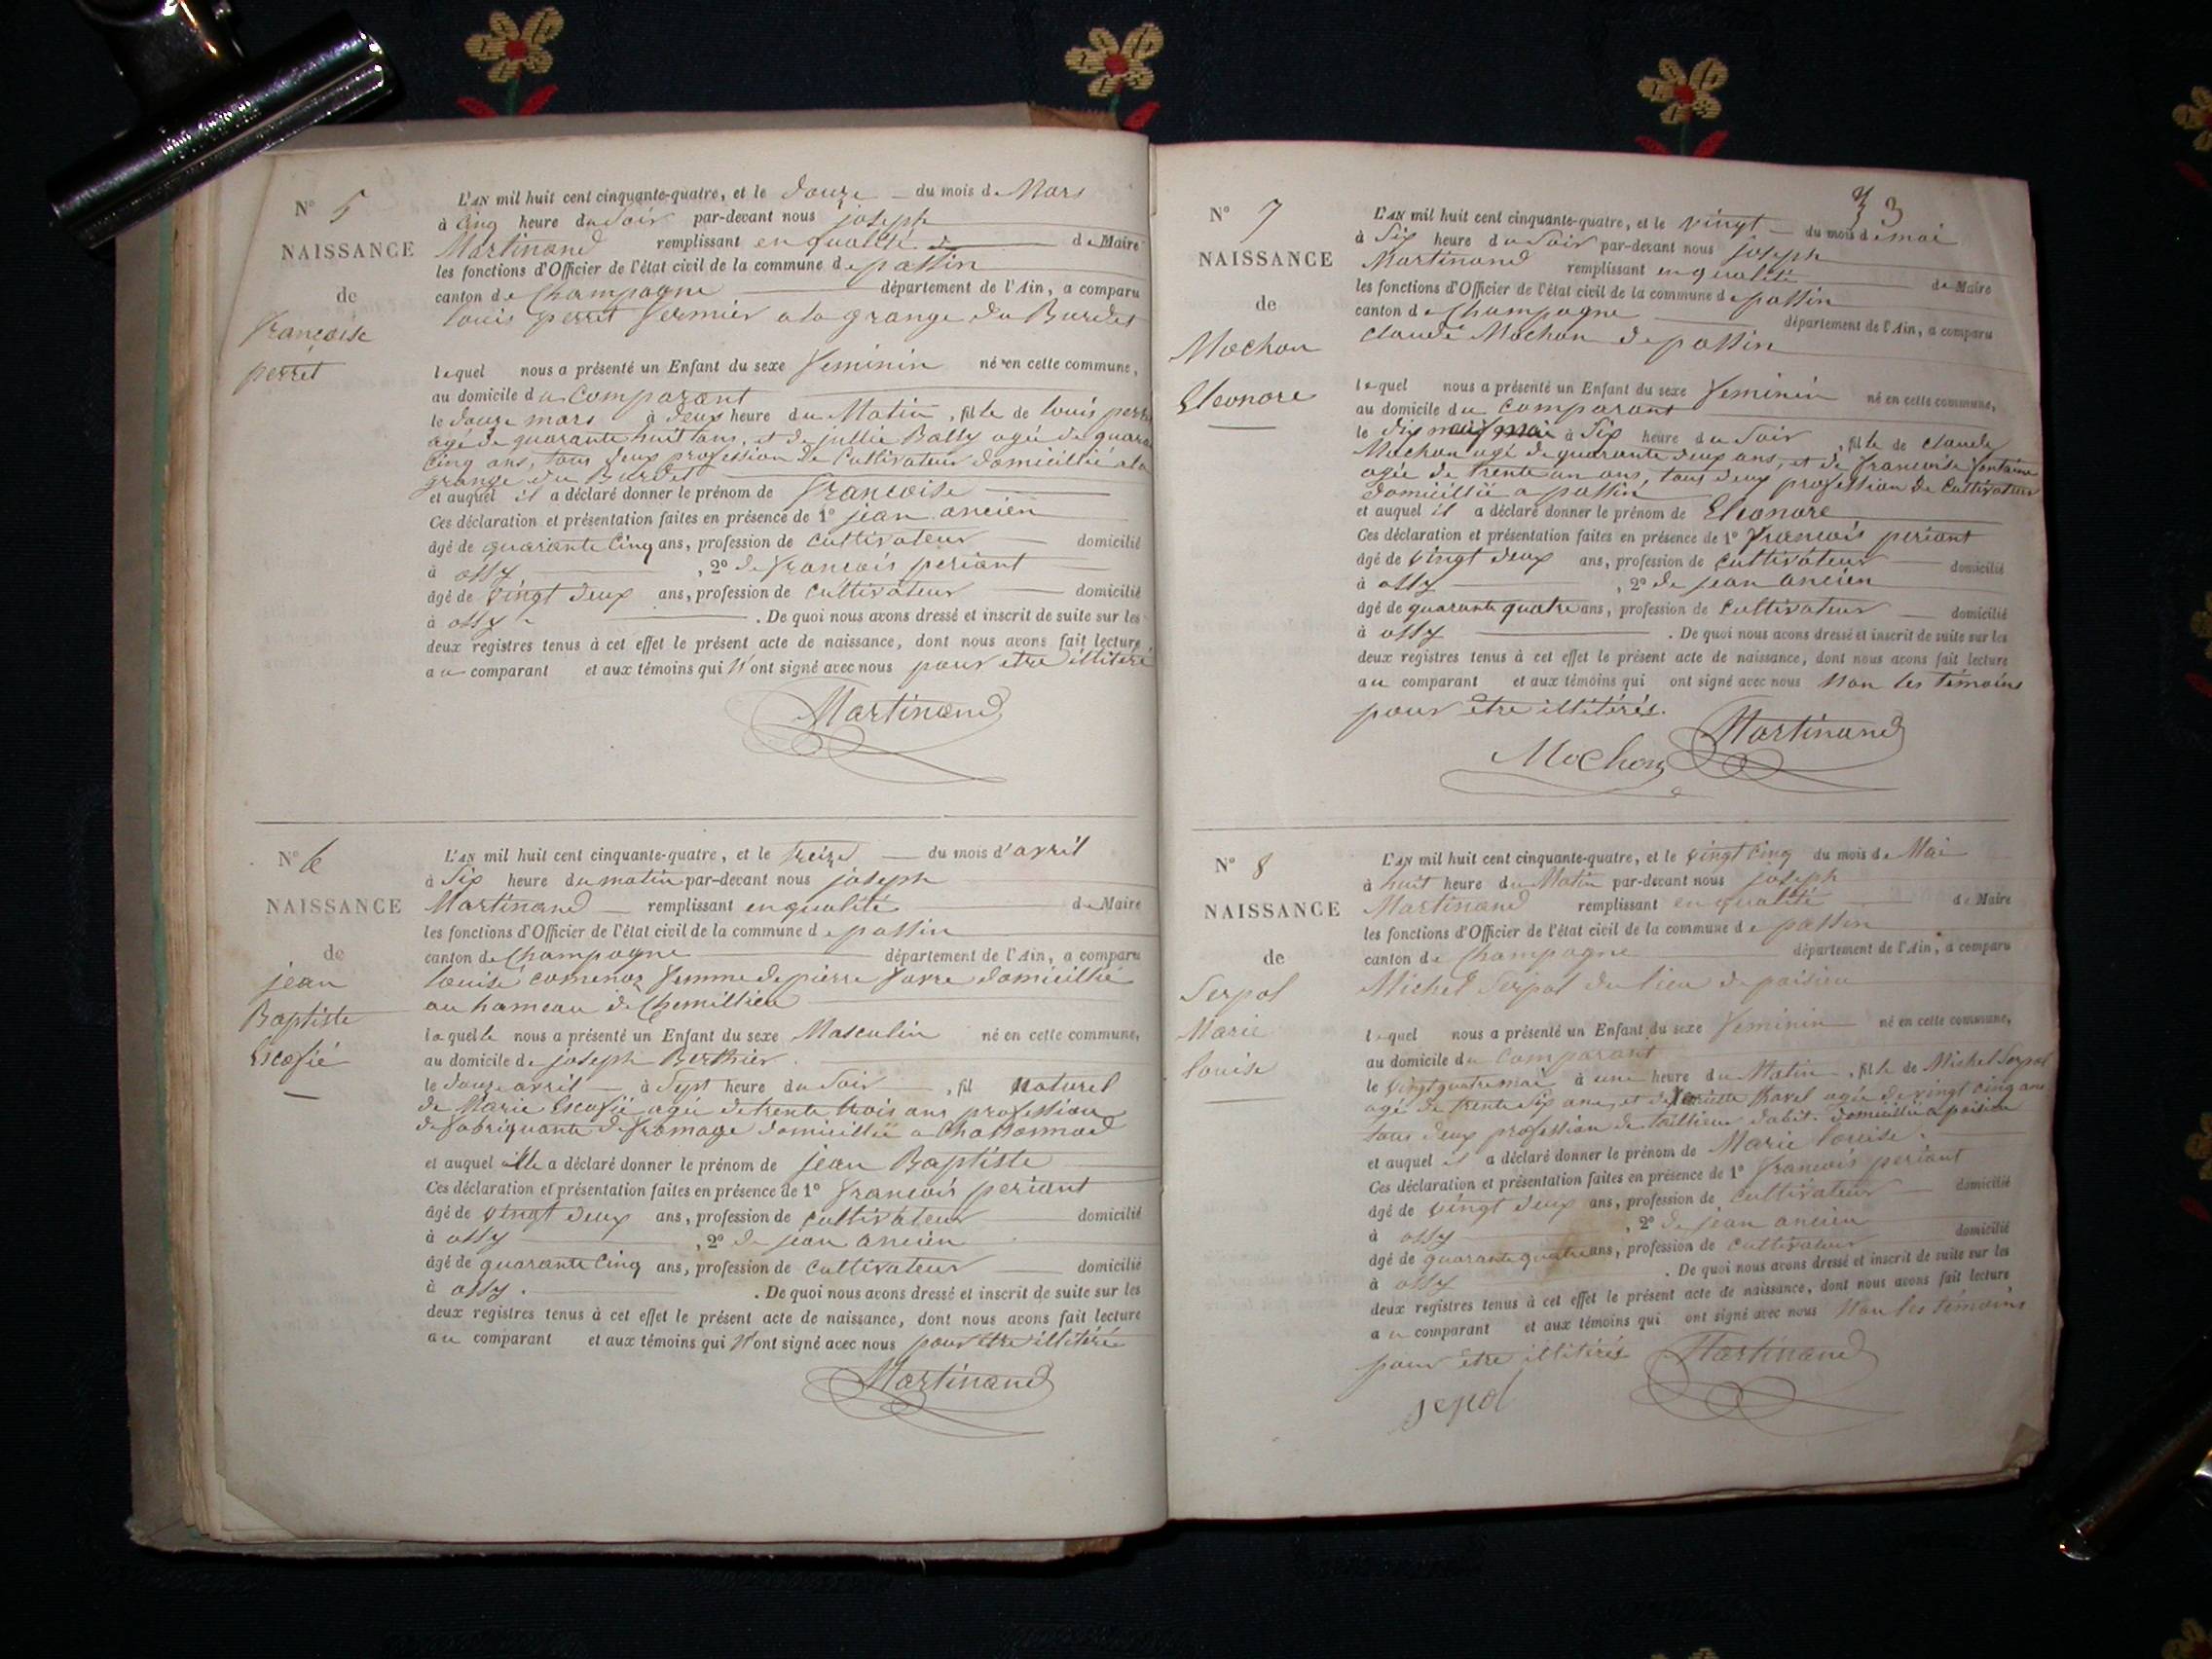 N° 5
NAISSANCE
de
francoise
perret
L'AN mil huit cent cinquante-quatre, et le douze du mois de Mars
à Cinq heure du Soir par-devant nous joseph
Martinand remplissant en qualité de Maire
les fonctions d'Officier de l'état civil de la commune de passin
canton de Champagne département de l'Ain, a comparu
louis perret fermier a la grange du Burdet
lequel nous a présenté un Enfant du sexe feminin né en cette commune,
au domicile du Comparant
le douze mars à deux heure du Matin, fille de louis perret
agé de quarante huit ans, et de jullie Bally agée de quarante
Cinq ans, tous deux profession de Cultivateur domicillié a la
grange du Burdet
et auquel il a déclaré donner le prénom de francoise
Ces déclaration et présentation faites en présence de 1° jean ancien
âgé de quarante Cinq ans, profession de Cultivateur domicilié
à ossy , 2° de francois periant
âgé de vingt deux ans, profession de Cultivateur domicilié
à ossy . De quoi nous avons dressé et inscrit de suite sur les
deux registres tenus à cet effet le présent acte de naissance, dont nous avons fait lecture
au comparant et aux témoins qui N'ont signé avec nous pour etre illiteré
Martinand
N° 6
NAISSANCE
de
jean
Baptiste
Escofié
L'AN mil huit cent cinquante-quatre, et le treize du mois d'avril
à Six heure du matin par-devant nous joseph
Martinand remplissant en qualité de Maire
les fonctions d'Officier de l'état civil de la commune de passin
canton de Champagne département de l'Ain, a comparu
louise femme de pierre favre domicillié
au hameau de Chemillieu
laquelle nous a présenté un Enfant du sexe Masculin né en cette commune,
au domicile de joseph Berthier
le douze avril à Sept heure du Soir, fil Naturel
de Marie Escofié agée de trente trois ans profession
de fabriquante de fromage domicillié a
et auquel elle a déclaré donner le prénom de jean Baptiste
Ces déclaration et présentation faites en présence de 1° francois periant
âgé de vingt deux ans, profession de Cultivateur domicilié
à ossy , 2° de jean ancien
âgé de quarante Cinq ans, profession de Cultivateur domicilié
à ossy . De quoi nous avons dressé et inscrit de suite sur les
deux registres tenus à cet effet le présent acte de naissance, dont nous avons fait lecture
au comparant et aux témoins qui N'ont signé avec nous pour etre illiteré
Martinand
33
N° 7
NAISSANCE
de
Mochon
Eleonore
L'AN mil huit cent cinquante-quatre, et le vingt du mois de mai
à Six heure du Soir par-devant nous joseph
Martinand remplissant en qualité de Maire
les fonctions d'Officier de l'état civil de la commune de passin
canton de Champagne département de l'Ain, a comparu
claude Mochon de passin
lequel nous a présenté un Enfant du sexe feminin né en cette commune,
au domicile du Comparant
le dix neuf mai à Six heure du Soir, fille de claude
Mochon agé de quarante deux ans, et de francoise fontaine
agée de trente un ans, tous deux profession de Cultivateur
domicillié a passin
et auquel il a déclaré donner le prénom de Eleonore
Ces déclaration et présentation faites en présence de 1° francois periant
âgé de vingt deux ans, profession de Cultivateur domicilié
à ossy , 2° de jean ancien
âgé de quarante quatre ans, profession de Cultivateur domicilié
à ossy . De quoi nous avons dressé et inscrit de suite sur les
deux registres tenus à cet effet le présent acte de naissance, dont nous avons fait lecture
au comparant et aux témoins qui ont signé avec nous Non les témoins
pour etre illiterés.
Martinand
Mochon
N° 8
NAISSANCE
de
Serpol
Marie
louise
L'AN mil huit cent cinquante-quatre, et le vingt cinq du mois de Mai
à huit heure du Matin par-devant nous joseph
Martinand remplissant en qualité de Maire
les fonctions d'Officier de l'état civil de la commune de passin
canton de Champagne département de l'Ain, a comparu
Michel Serpol du lieu de poisieu
lequel nous a présenté un Enfant du sexe feminin né en cette commune,
au domicile du Comparant
le vingt quatre mai à une heure du Matin, fille de Michel Serpol
agé de trente six ans, et de Ravel agée de vingt cinq ans
tous deux profession de taillieur d'abit. domicillié a poisieu
et auquel il a déclaré donner le prénom de Marie louise.
Ces déclaration et présentation faites en présence de 1° francois periant
âgé de vingt deux ans, profession de Cultivateur domicilié
à ossy , 2° de jean ancien
âgé de quarante quatre ans, profession de Cultivateur domicilié
à ossy . De quoi nous avons dressé et inscrit de suite sur les
deux registres tenus à cet effet le présent acte de naissance, dont nous avons fait lecture
au comparant et aux témoins qui ont signé avec nous Non les témoins
pour etre illiterés
Martinand